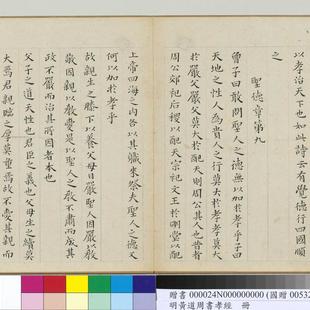 以孝治天下也如此詩云有覺德行四國順
之
聖德章第九
曾子曰敢問聖人之德無以加於孝乎子曰
天地之性人為貴人之行莫大於孝孝莫大
於嚴父嚴父莫大於配天則周公其人也昔者
周公郊祀后稷以配天宗祀文王於明堂以配
上帝四海之內各以其職來祭夫聖人之德又
何以加於孝乎
故親生之膝下以養父母日嚴聖人因嚴以教
敬因親以教愛是以聖人之教不肅而成其
政不嚴而治其所因者本也
父子之道天性也君臣之義也父母生之續莫
大焉君親臨之厚莫重焉故不愛其親而
贈書 000024N000000000 (國贈 00532
明黃道周書孝經 冊